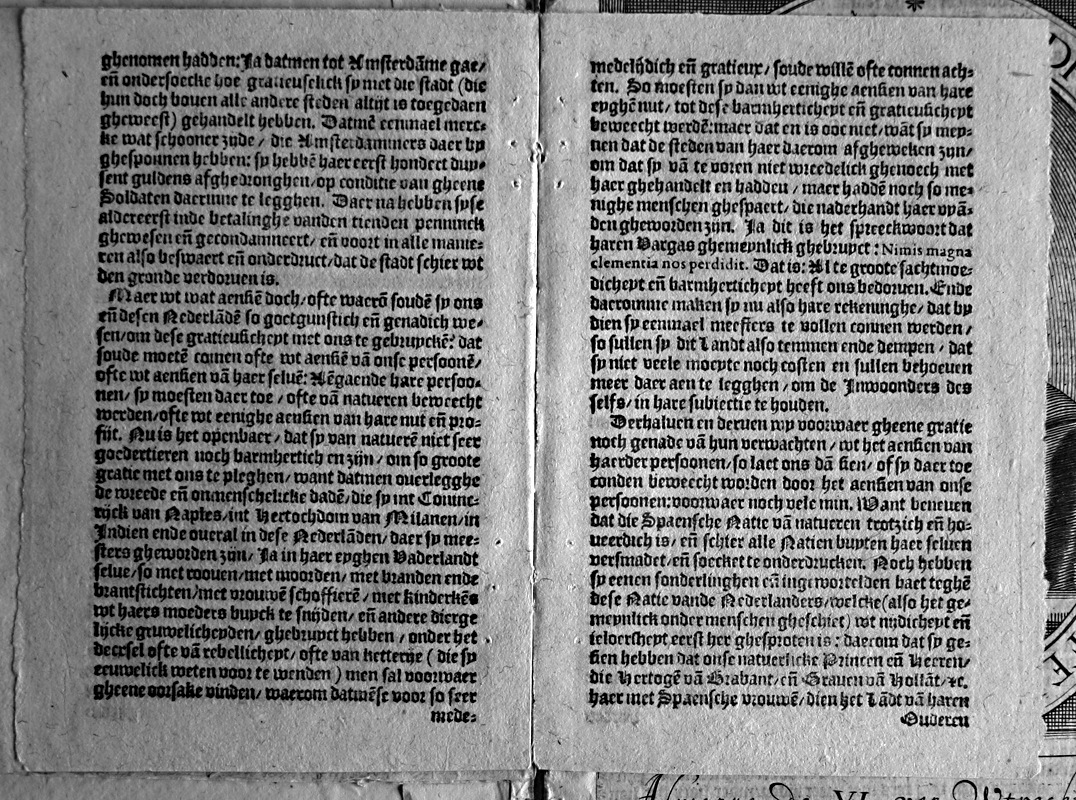 ghenomen hadden: Ja datmen tot Amsterdāme gae/
en̄ ondersoecke hoe gratieuselick sy met die stadt (die
hun doch bouen alle andere steden altijt is toegedaen
gheweest) gehandelt hebben. Datmē eenmael merc-
ke wat schooner zijde / die Amsterdammers daer by
ghesponnen hebben: sy hebbē haer eerst hondert duy-
sent guldens afghedronghen/op conditie van gheene
Soldaten daerinne te legghen. Daer na hebben syse
aldereerst inde betalinghe vanden tienden penninck
ghewesen en̄ gecondamneert/ en̄ voort in alle manie-
ren also beswaert en̄ onderdruct/dat de stadt schier wt
den gronde verdoruen is.
Maer wt wat aensiē doch/ofte waerō soudē sy ons
en̄ desen Nederlādē so goetgunstich en̄ genadich we-
sen/om dese gratieusicheyt met ons te gebruyckē? dat
soude moetē comen ofte wt aensiē vā onse persoonē/
ofte wt aensien vā haer seluē: Aēgaende hare persoo-
nen/ sy moesten daer toe / ofte vā natueren beweecht
werden/ofte wt eenighe aensien van hare nut en̄ pro-
fijt. Nu is het openbaer/ dat sy van natuerē niet seer
goedertieren noch barmhertich en zijn/ om so groote
gratie met ons te pleghen/ want datmen ouerlegghe
de wreede en̄ onmenschelicke dadē/die sy int Coninc-
rijck van Naples/int Hertochdom van Milanen/in
Indien ende oueral in dese Nederlādē/ daer sy mee-
sters gheworden zijn/ Ja in haer eyghen Vaderlandt
selue/so met roouen/met moorden/ met branden ende
brantstichten/met vrouwē schoffierē/ met kinderkēs
wt haers moeders buyck te snijden/ en̄ andere dierge
lijcke gruwelicheyden/ ghebruyct hebben / onder het
decxsel ofte vā rebellicheyt/ ofte van ketterije ( die sy
eeuwelick weten voor te wenden ) men sal voorwaer
gheene oorsake vinden/ waerom datwēse voor so seer
mede-
medelijdich en̄ gratieux/ soude willē ofte connen ach-
ten. So moesten sy dan wt eenighe aensien van hare
eyghē nut/ tot dese barmherticheyt en̄ gratieusicheyt
beweecht werdē: maer dat en is ooc niet/wāt sy mey-
nen dat de steden van haer daerom afgheweken zijn/
om dat sy vā te voren niet wreedelick ghenoech met
haer ghehandelt en hadden / maer haddē noch so me-
nighe menschen ghespaert/ die naderhandt haer vyā-
den gheworden zijn. Ja dit is het spreeckwoort dat
haren Vargas ghemeynlick ghebruyct: Nimis magna
clementia nos perdidit. Dat is: Al te groote sachtmoe-
dicheyt en̄ barmherticheyt heeft ons bedoruen. Ende
daeromme maken sy nu also hare rekeninghe/ dat by
dien sy eenmael meesters te vollen connen werden/
so sullen sy dit Landt also temmen ende dempen / dat
sy niet veele moeyte noch costen en sullen behoeuen
meer daer aen te legghen / om de Inwoonders des
selfs/ in hare subiectie te houden.
Derhaluen en deruen wy voorwaer gheene gratie
noch genade vā hun verwachten / wt het aensien van
haerder persoonen/ so laet ons dā sien/ of sy daer toe
conden beweecht worden door het aensien van onse
persoonen: voorwaer noch vele min. Want beneuen
dat die Spaensche Natie vā natueren trotzich en̄ ho-
ueerdich is/ en̄ schier alle Natien buyten haer seluen
versmadet/en̄ soecket te onderdrucken. Noch hebben
sy eenen sonderlinghen en̄ ingewortelden haet teghē
dese Natie vande Nederlanders/welcke(also het ge-
meynlick onder menschen gheschiet) wt nijdicheyt en̄
ieloersheyt eerst her ghesproten is: daerom dat sy ge-
sien hebben dat onse natuerlicke Princen en̄ Heeren/
die Hertogē vā Brabant/ en̄ Grauen vā Hollāt/ &c.
haer met Spaensche vrouwē/dien het Lādt vā haren
Ouderen